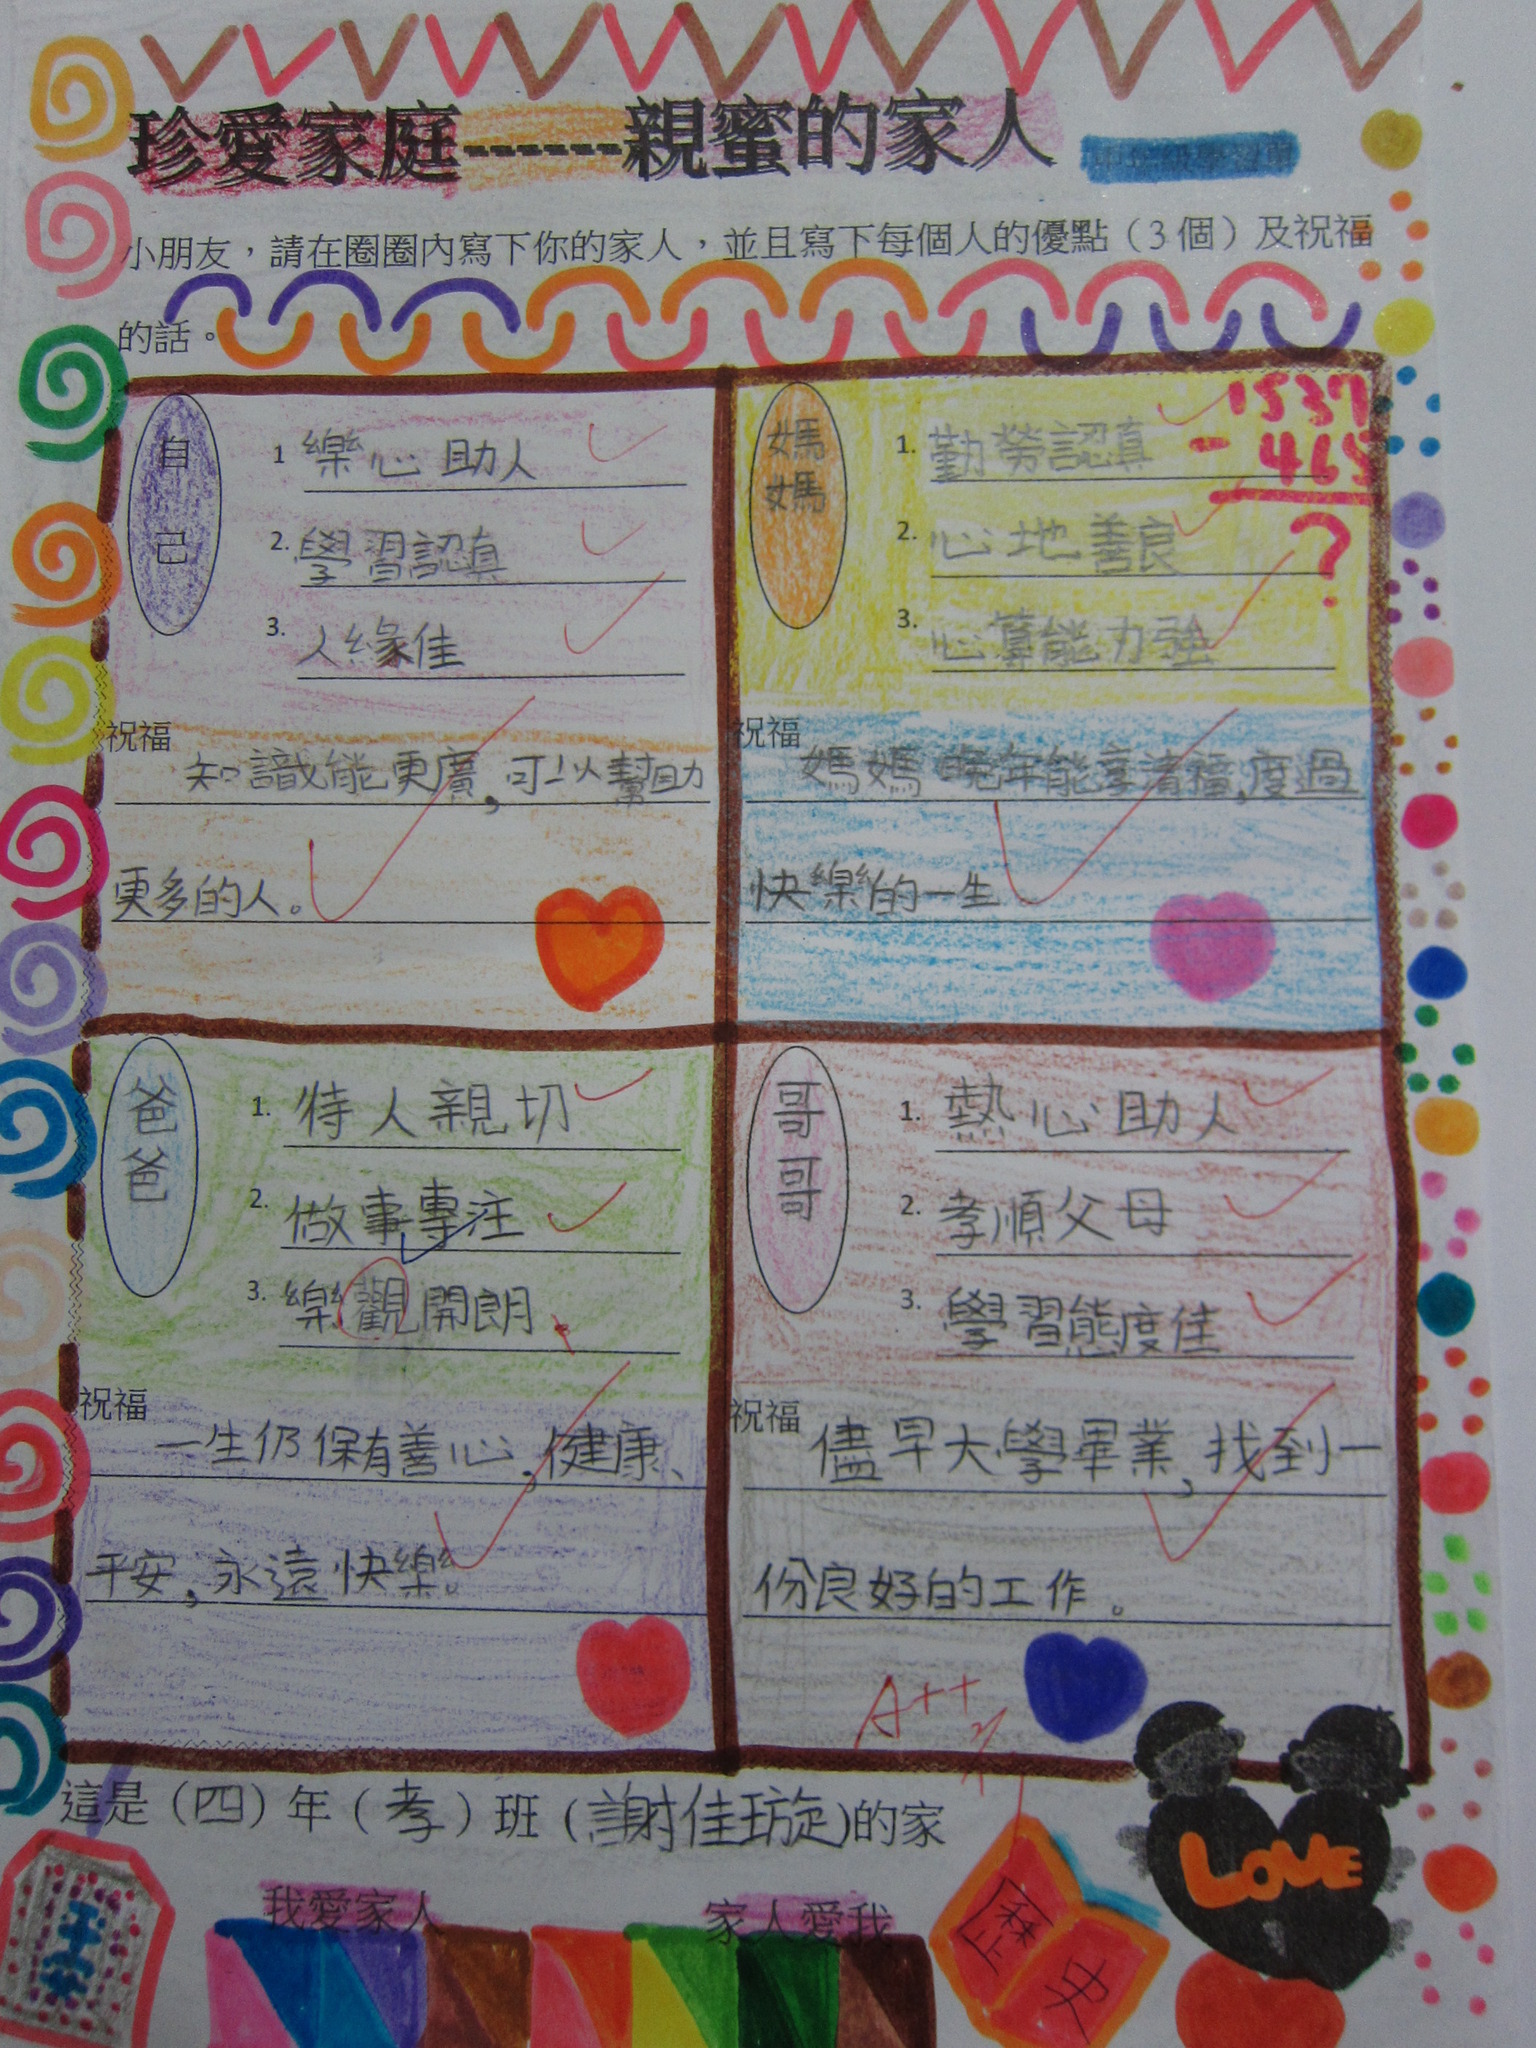 珍愛家庭------親蜜的家人 中年級學習單
小朋友，請在圈圈內寫下你的家人，並且寫下每個人的優點（3個）及祝福
的話。
自己
1 樂心助人
2. 學習認真
3. 人緣佳
祝福
知識能更廣，可以幫助
更多的人。
媽媽
1. 勤勞認真
2. 心地善良
3. 心算能力強
1537
- 465
?
祝福
媽媽晚年能享清福，度過
快樂的一生
爸爸
1. 待人親切
2. 做事專注
3. 樂觀開朗
祝福
一生仍保有善心，健康、
平安，永遠快樂。
哥哥
1. 熱心助人
2. 孝順父母
3. 學習態度佳
祝福
儘早大學畢業，找到一
份良好的工作。
A++
這是（四）年（孝）班（謝佳璇）的家
LOVE
我愛家人 家人愛我
平安
歷史